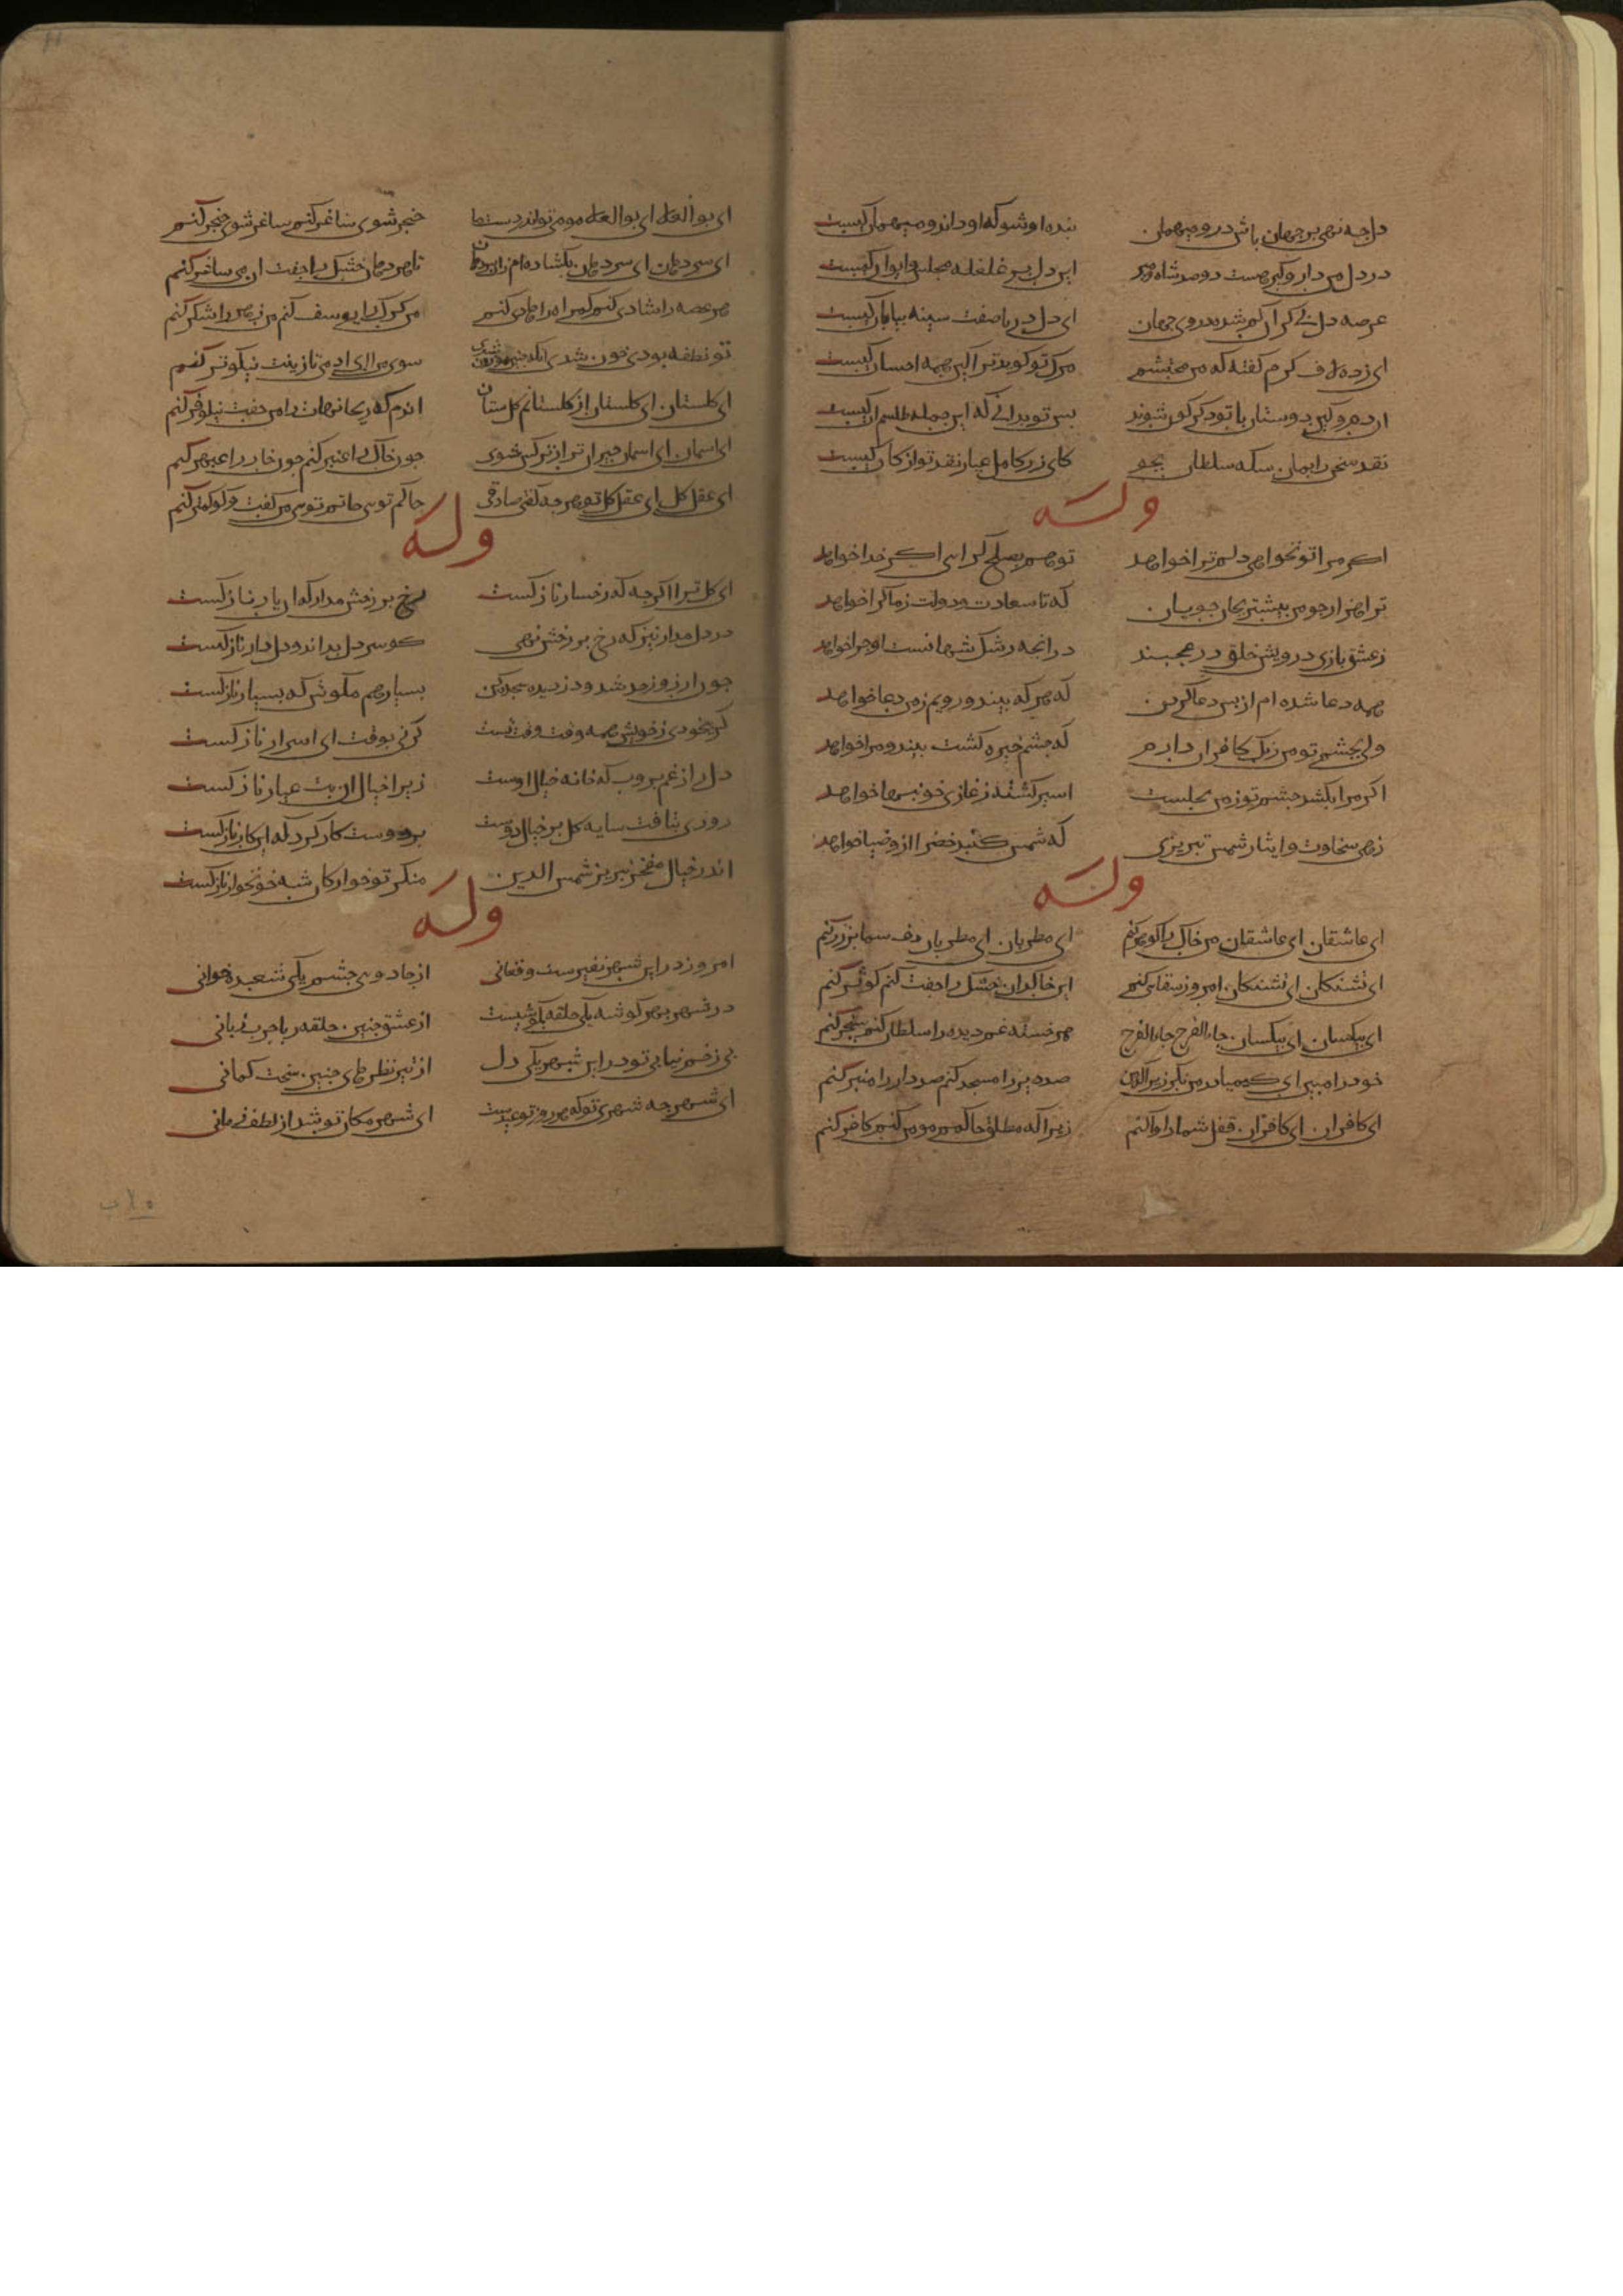 دل چه نهی بر جهان باش درو میهمان بنده او شو که او داند و میهمان کیست
در دل من دار و گیر هست دو صد شاه و میر این دل پر غلغله مجلس و ایوان کیست
عرصه دل بی کران کم شده در وی جهان ای دل دریا صفت سینه بیابان کیست
ای زده لاف کرم گفته که من محتشم مرگ تو گوید ترا کین همه احسان کیست
آن دم و کین دوستان با تو دگرگون شوند پس تو بدانی که این جمله طلسم آن کیست
نقد سخن را بمان سکه سلطان بجو کای زر کامل عیار نقد تو از کان کیست
وله
اگر مرا تو نخواهی دلم ترا خواهد تو هم بصلح گرایی اگر خدا خواهد
ترا هزار چو من بیشتر بجان جویان که تا سعادت و دولت ز ما کرا خواهد
ز عشق بازی درویش خلق در عجبند در آنچه رشک شهانست او چرا خواهد
همه دعا شده ام از بس دعا کردن که هر که بیند رویم ز من دعا خواهد
ولی بچشم تو من رنگ کافران دارم که چشم خیره کشت بیند و مرا خواهد
اگر مرا بکشد چشم تو ز من بحلست اسیر کشته ز غازی خونبها خواهد
زهی سخاوت و ایثار شمس تبریزی که شمس گنبد خضرا ازو ضیا خواهد
وله
ای عاشقان ای عاشقان من خاک را گوهر کنم ای مطربان ای مطربان دف شما پر زر کنم
ای تشنگان ای تشنگان امروز سقایی کنم این خاکدان خشک را جفت کنم کوثر کنم
ای بیکسان ای بیکسان جاء الفرج جاء الفرج هر خسته غم دیده را سلطان کنم سنجر کنم
خود را مبین ای کیمیا در من نگر زیرا که من صد دیر را مسجد کنم صد دار را منبر کنم
ای کافران ای کافران قفل شما را وا کنم زیرا که مطلق حاکمم مومن کنم کافر کنم
ای بوالعلا ای بوالعلا مومی تو اندر دست ما خنجر شوی ساغر کنم ساغر شوی خنجر کنم
ای سردهان ای سردهان بگشاده ام زان سردهان تا هر دهان خشک را جفت لب ساغر کنم
هر غصه را شادی کنم گمراه را هادی کنم من گرگ را یوسف کنم من زهر را شکر کنم
تو نطفه بودی خون شدی آنگه چنین موزون شدی سوی من ای آدمی تا زینت نیکوتر کنم
ای گلستان ای گلستان از گلستانم گل ستان آن دم که ریحانهات را من جفت نیلوفر کنم
ای آسمان ای آسمان حیران تر از نرگس شوی چون خاک را عنبر کنم چون خار را عبهر کنم
ای عقل کل ای عقل کل تو هر چه گفتی صادقی حاکم توی حاتم توی من گفت و گو کمتر کنم
وله
ای گل ترا اگرچه که رخسار نازکست رخ بر رخش مدار که آن یار نازکست
در دل مدار نیز که رخ بر رخش نهی کو سر دل بداند و دلدار نازکست
چون آرزو ز حد شد دزدیده سجده کن بسیار هم مکوش که بسیار نازکست
گر بیخودی ز خویش همه وقت وقت تست گر نی بوقت آی اسرار نازکست
دل را ز غم بروب که خانه خیال اوست زیرا خیال آن بت عیار نازکست
روزی بتافت سایه گل بر خیال دوست بر دوست کار کرد که این کار نازکست
اندر خیال مفخر تبریز شمس الدین منگر تو خوار کان شه خونخوار نازکست
وله
امروز درین شهر نفیرست و فغانی از جادوی چشم یکی شعبده خوانی
در شهر بهر گوشه یکی حلقه بگوشیست از عشق چنین حلقه ربا چرب زبانی
بی زخم نیابی تو درین شهر یکی دل از تیر نظرهای چنین سخت کمانی
ای شهر چه شهری تو که هر روز تو عیدست ای شهر مکان تو شد از لطف زمانی
۷۵ب